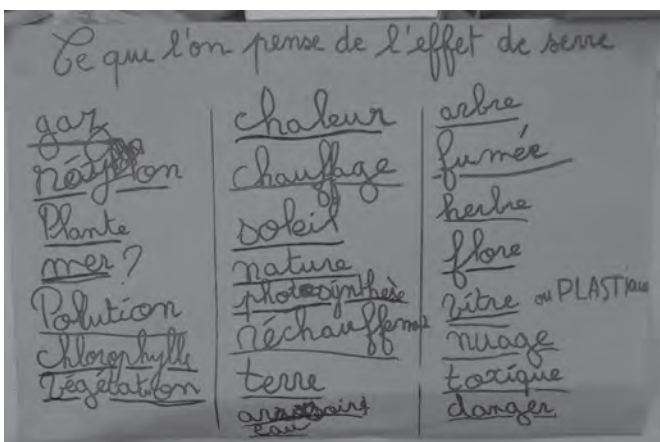 Ce que l'on pense de l'effet de serre
gaz
Plante
mer ?
Polution
chlorophylle
Végétation
chaleur
chauffage
soleil
nature
photosynthèse
réchauffement
terre
eau
arbre
fumée
herbe
flore
vitre ou PLASTique
nuage
toxique
danger